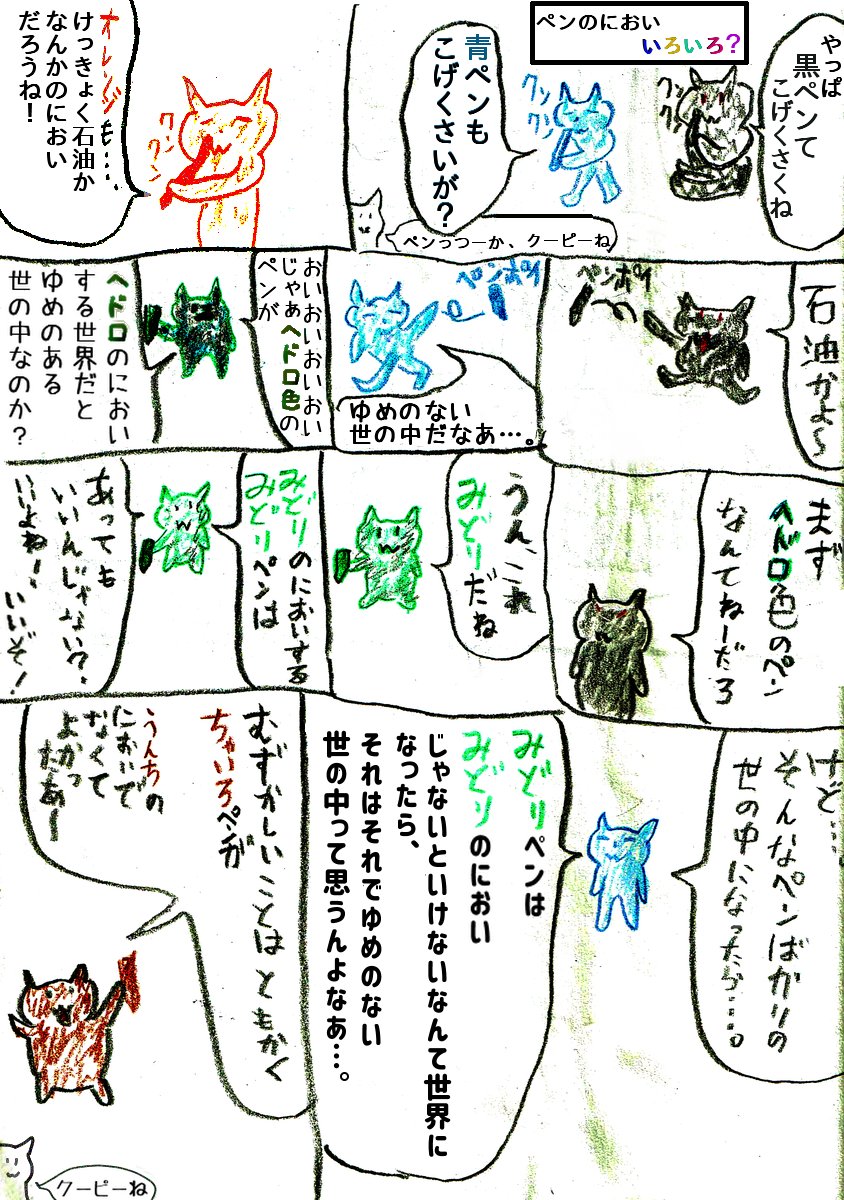 ペンのにおい
いろいろ?
やっぱ
黒ペンて
こげくさくね
クンクン
クンクン
青ペンも
こげくさいが?
ペンっつーか、クーピーね
クンクン
オレンジも…
けっきょく石油か
なんかのにおい
だろうね!
石油かよ~
ペンポイ
ペンポイ
ゆめのない
世の中だなあ…。
おいおいおいおい
じゃあヘドロ色の
ペンが
ヘドロのにおい
する世界だと
ゆめのある
世の中なのか?
まず
ヘドロ色のペン
なんてねーだろ
うん、これ
みどりだね
みどりのにおいする
みどりペンは
あっても
いいんじゃない?
いいよねー、いいぞ!
けど…、
そんなペンばかりの
世の中になったら…。
みどりペンは
みどりのにおい
じゃないといけないなんて世界に
なったら、
それはそれでゆめのない
世の中って思うんよなあ…。
むずかしいことはともかく
ちゃいろペンが
うんちの
においで
なくて
よかっ
たあ~
クーピーね